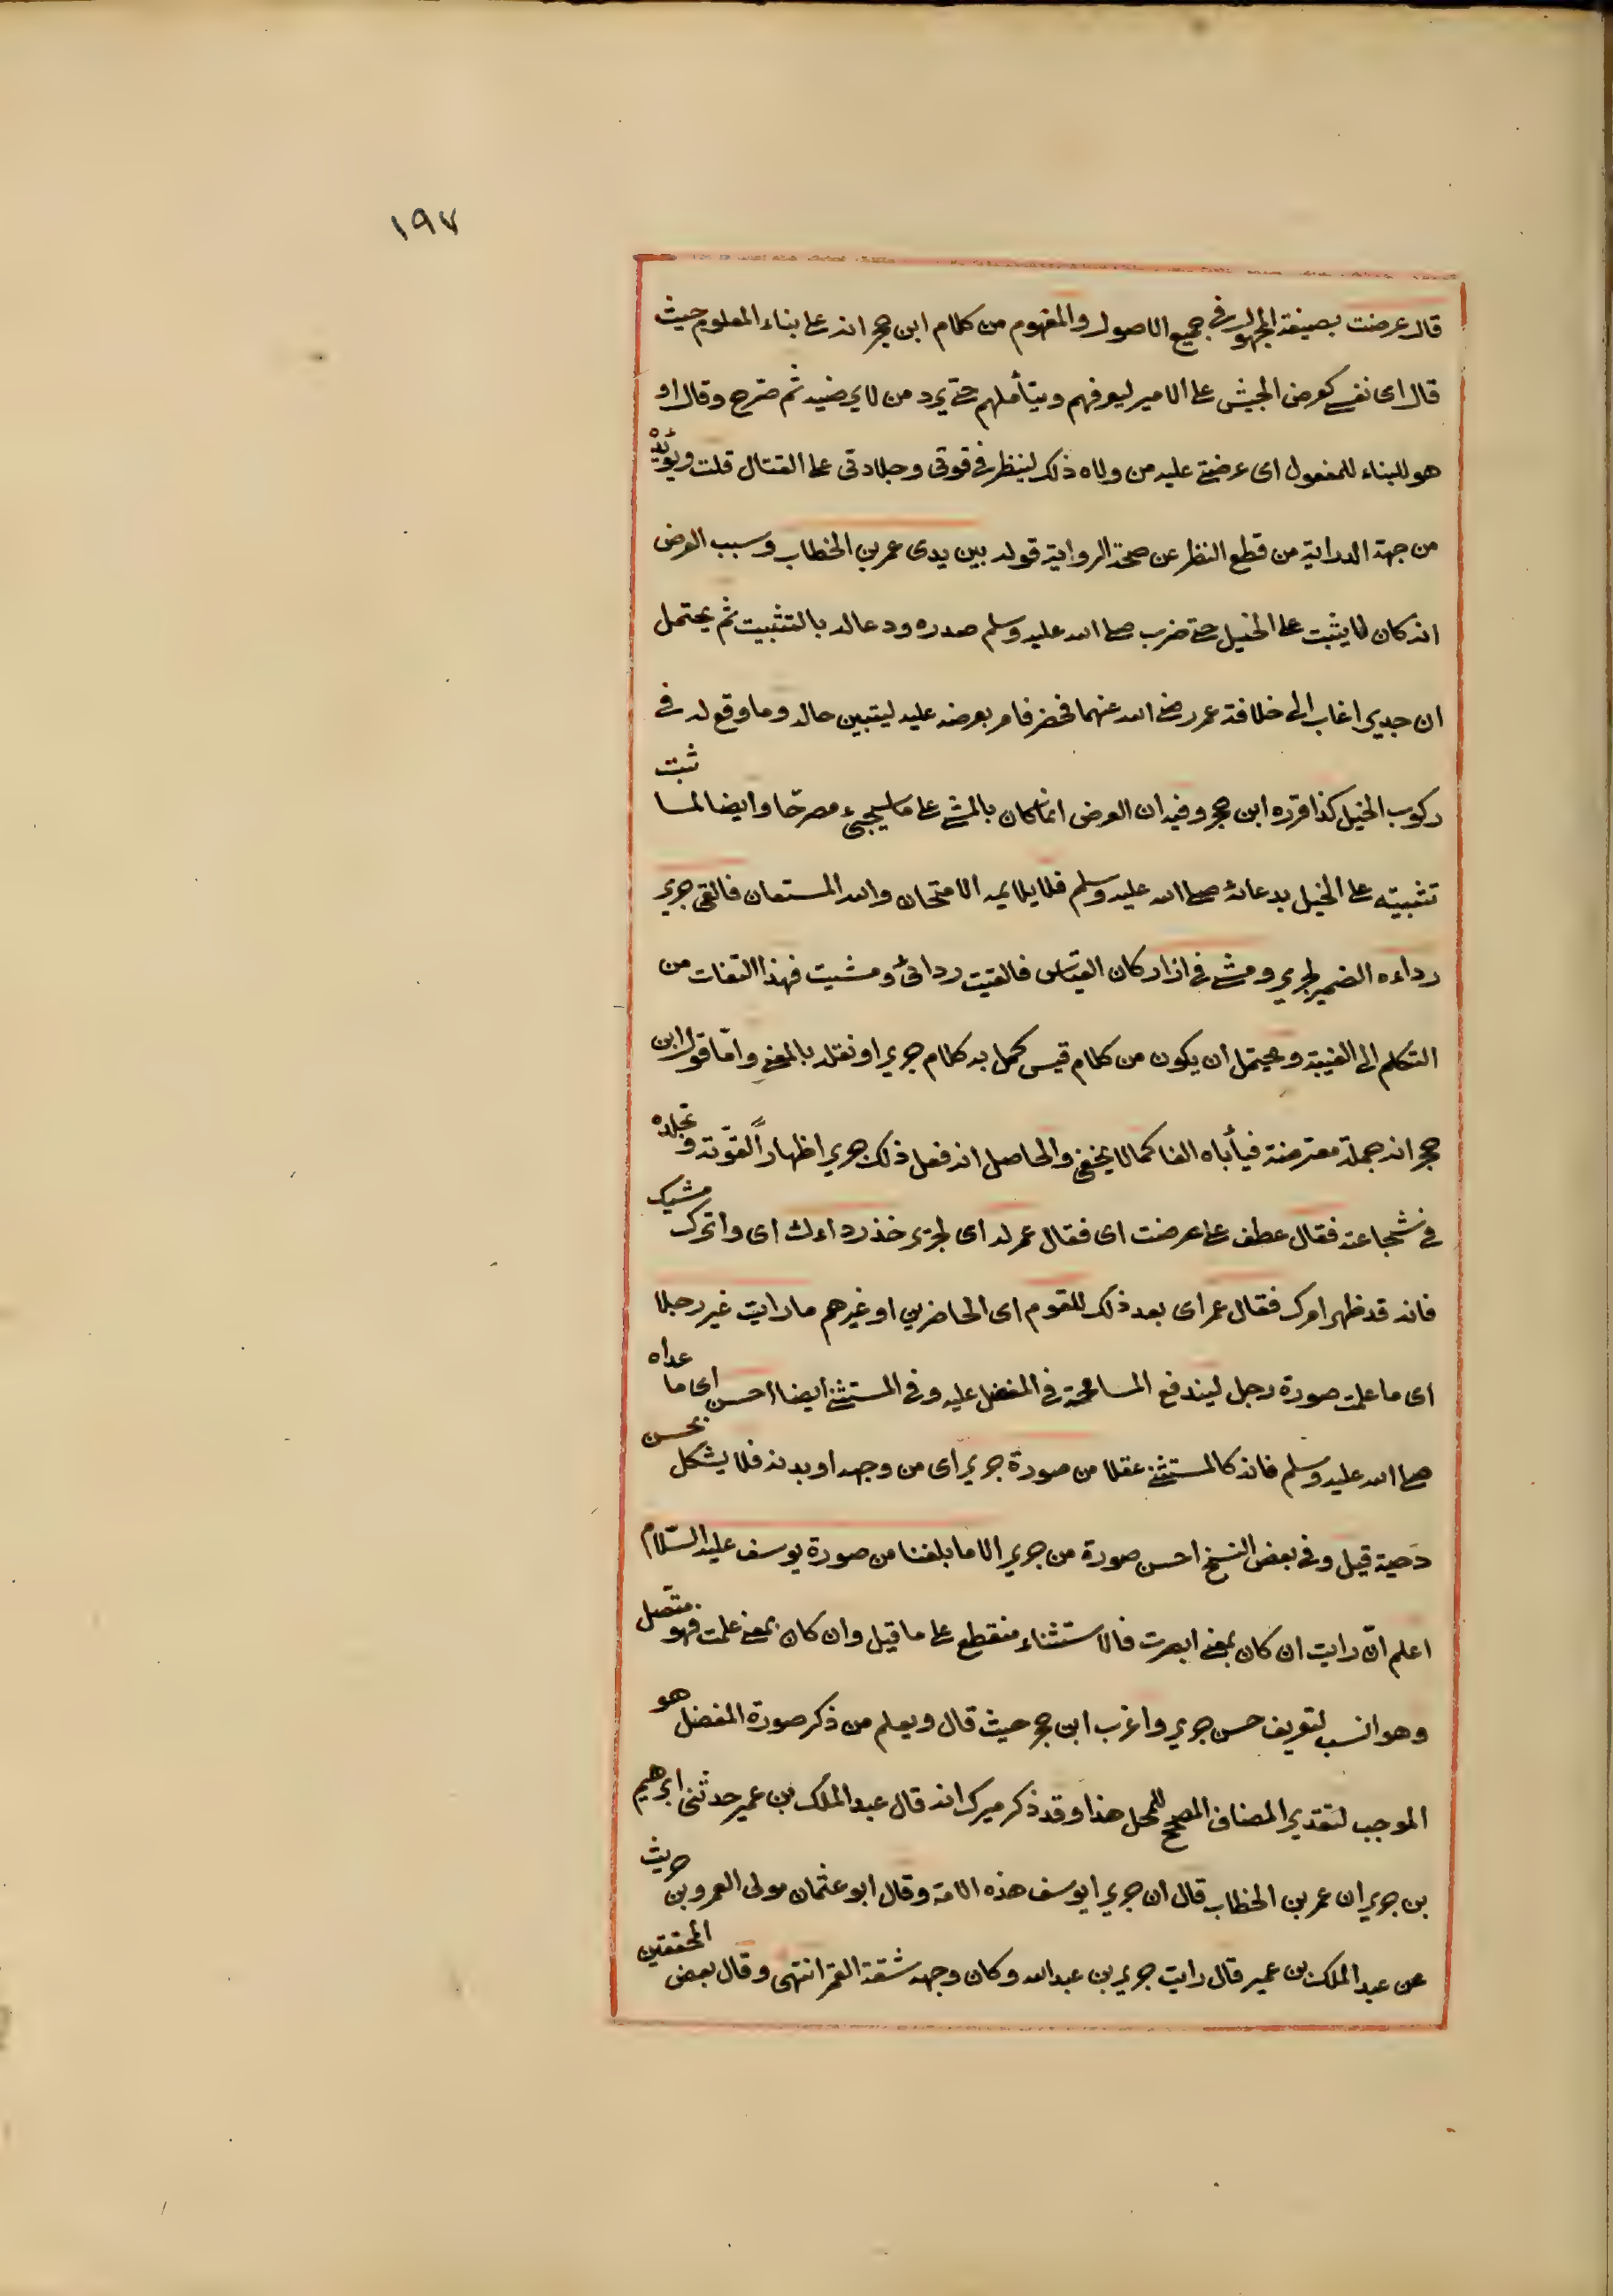 ١٩٧
قال عرضت بصيغة المجهول في جميع الاصول والمفهوم من كلام ابن حجر انه على بناء المعلوم حيث
قال اى نفسى كعرض الجيش على الامير ليعرفهم ويتأملهم حتى يرد من لا يرضيه ثم صرح وقال او
هو للبناء للمفعول اى عرضنى عليه من ولاه ذلك لينظر في قوتى وجلادتى على القتال قلت ويؤيده
من جهة الدراية من قطع النظر عن صحة الرواية قوله بين يدى عمر بن الخطاب وسبب العرض
انه كان لا يثبت على الخيل حتى ضرب صلى الله عليه وسلم صدره ودعا له بالتثبيت ثم يحتمل
ان جديرا غاب الى خلافة عمر رضى الله عنهما فحضر فامر بعرضه عليه ليتبين حاله وما وقع له في
ركوب الخيل كذا قرره ابن حجر وفيه ان العرض انما كان بالمشى على ما سيجيء مصرحا وايضا لما ثبت
تثبيته على الخيل بدعائه صلى الله عليه وسلم فلا يلايمه الامتحان والله المستعان فالقى جرير
رداءه الضمير لجرير ومشى في ازار كان القياس فالقيت ردائى ومشيت فهذا التفات من
التكلم الى الغيبة ويحتمل ان يكون من كلام قيس كمل به كلام جرير او نقله بالمعنى واما قول ابن
حجر انه جملة معترضة فيأباه الفا كما لا يخفى والحاصل انه فعل ذلك جرير اظهاراً لقوّته وتجلده
في شجاعته فقال عطف على عرضت اى فقال عمر له اى لجرير خذ رداءك اى واترك مشيك
فانه قد ظهر امرك فقال عمر اى بعد ذلك للقوم اى الحاضرين او غيرهم ما رايت غير رجلا
اى ما علمت صورة رجل ليندفع المسامحة في المفضل عليه وفي المستثنى ايضا احسن اى ما عداه
صلى الله عليه وسلم فانه كالمستثنى عقلا من صورة جرير اى من وجهه او بدنه فلا يشكل بحسن
دحية قيل وفي بعض النسخ احسن صورة من جرير الا ما بلغنا من صورة يوسف عليه السّلام
اعلم انّ رايت ان كان بمعنى ابصرت فالاستثناء منقطع على ما قيل وان كان بمعنى علمت فهو متصل
وهو انسب لتعريف حسن جرير واغرب ابن حجر حيث قال ويعلم من ذكر صورة المفضل هو
الموجب لتقدير المضاف المصحح للمحل هذا وقد ذكر ميرك انه قال عبد الملك بن عمير حدثنى ابرهيم
بن جرير ان عمر بن الخطاب قال ان جرير ايوسف هذه الامة وقال ابو عثمان مولى العمرو بن حريث
عن عبد الملك بن عمير قال رايت جرير بن عبد الله وكان وجهه شقة القمر انتهى وقال بعض المحققين